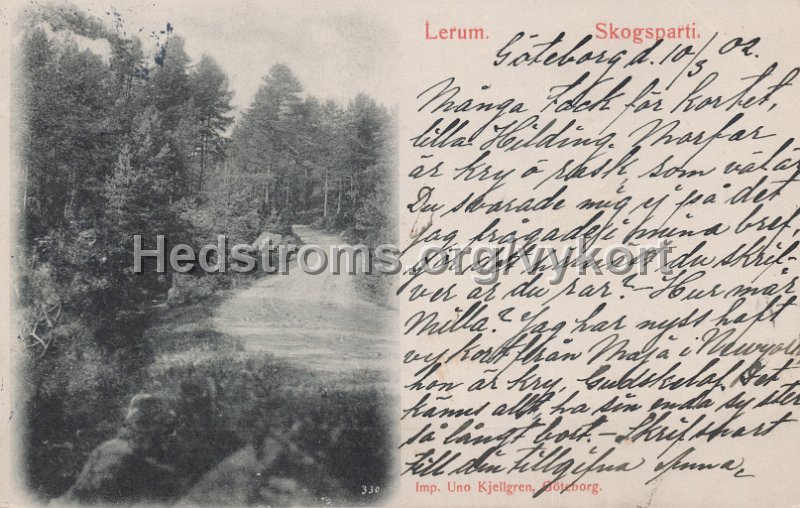 Lerum. Skogsparti.
Göteborg d. 10/3 02.
Många Tack för kortet,
lilla Hilding. Morfar
är kry o rask som väl är
Du svarade mig ej på det
jag frågade i mina bref,
du skrif-
ver är du rar? - Hur mår
Milla? Jag har nyss haft
vykort från Maja i Newyork
hon är kry, Gudskelof. Det
känns allt, ha sin enda syster
så långt bort. - Skrif snart
till din tillgifna Anna
Hedstroms.org/vykort
330
Imp. Uno Kjellgren, Göteborg.